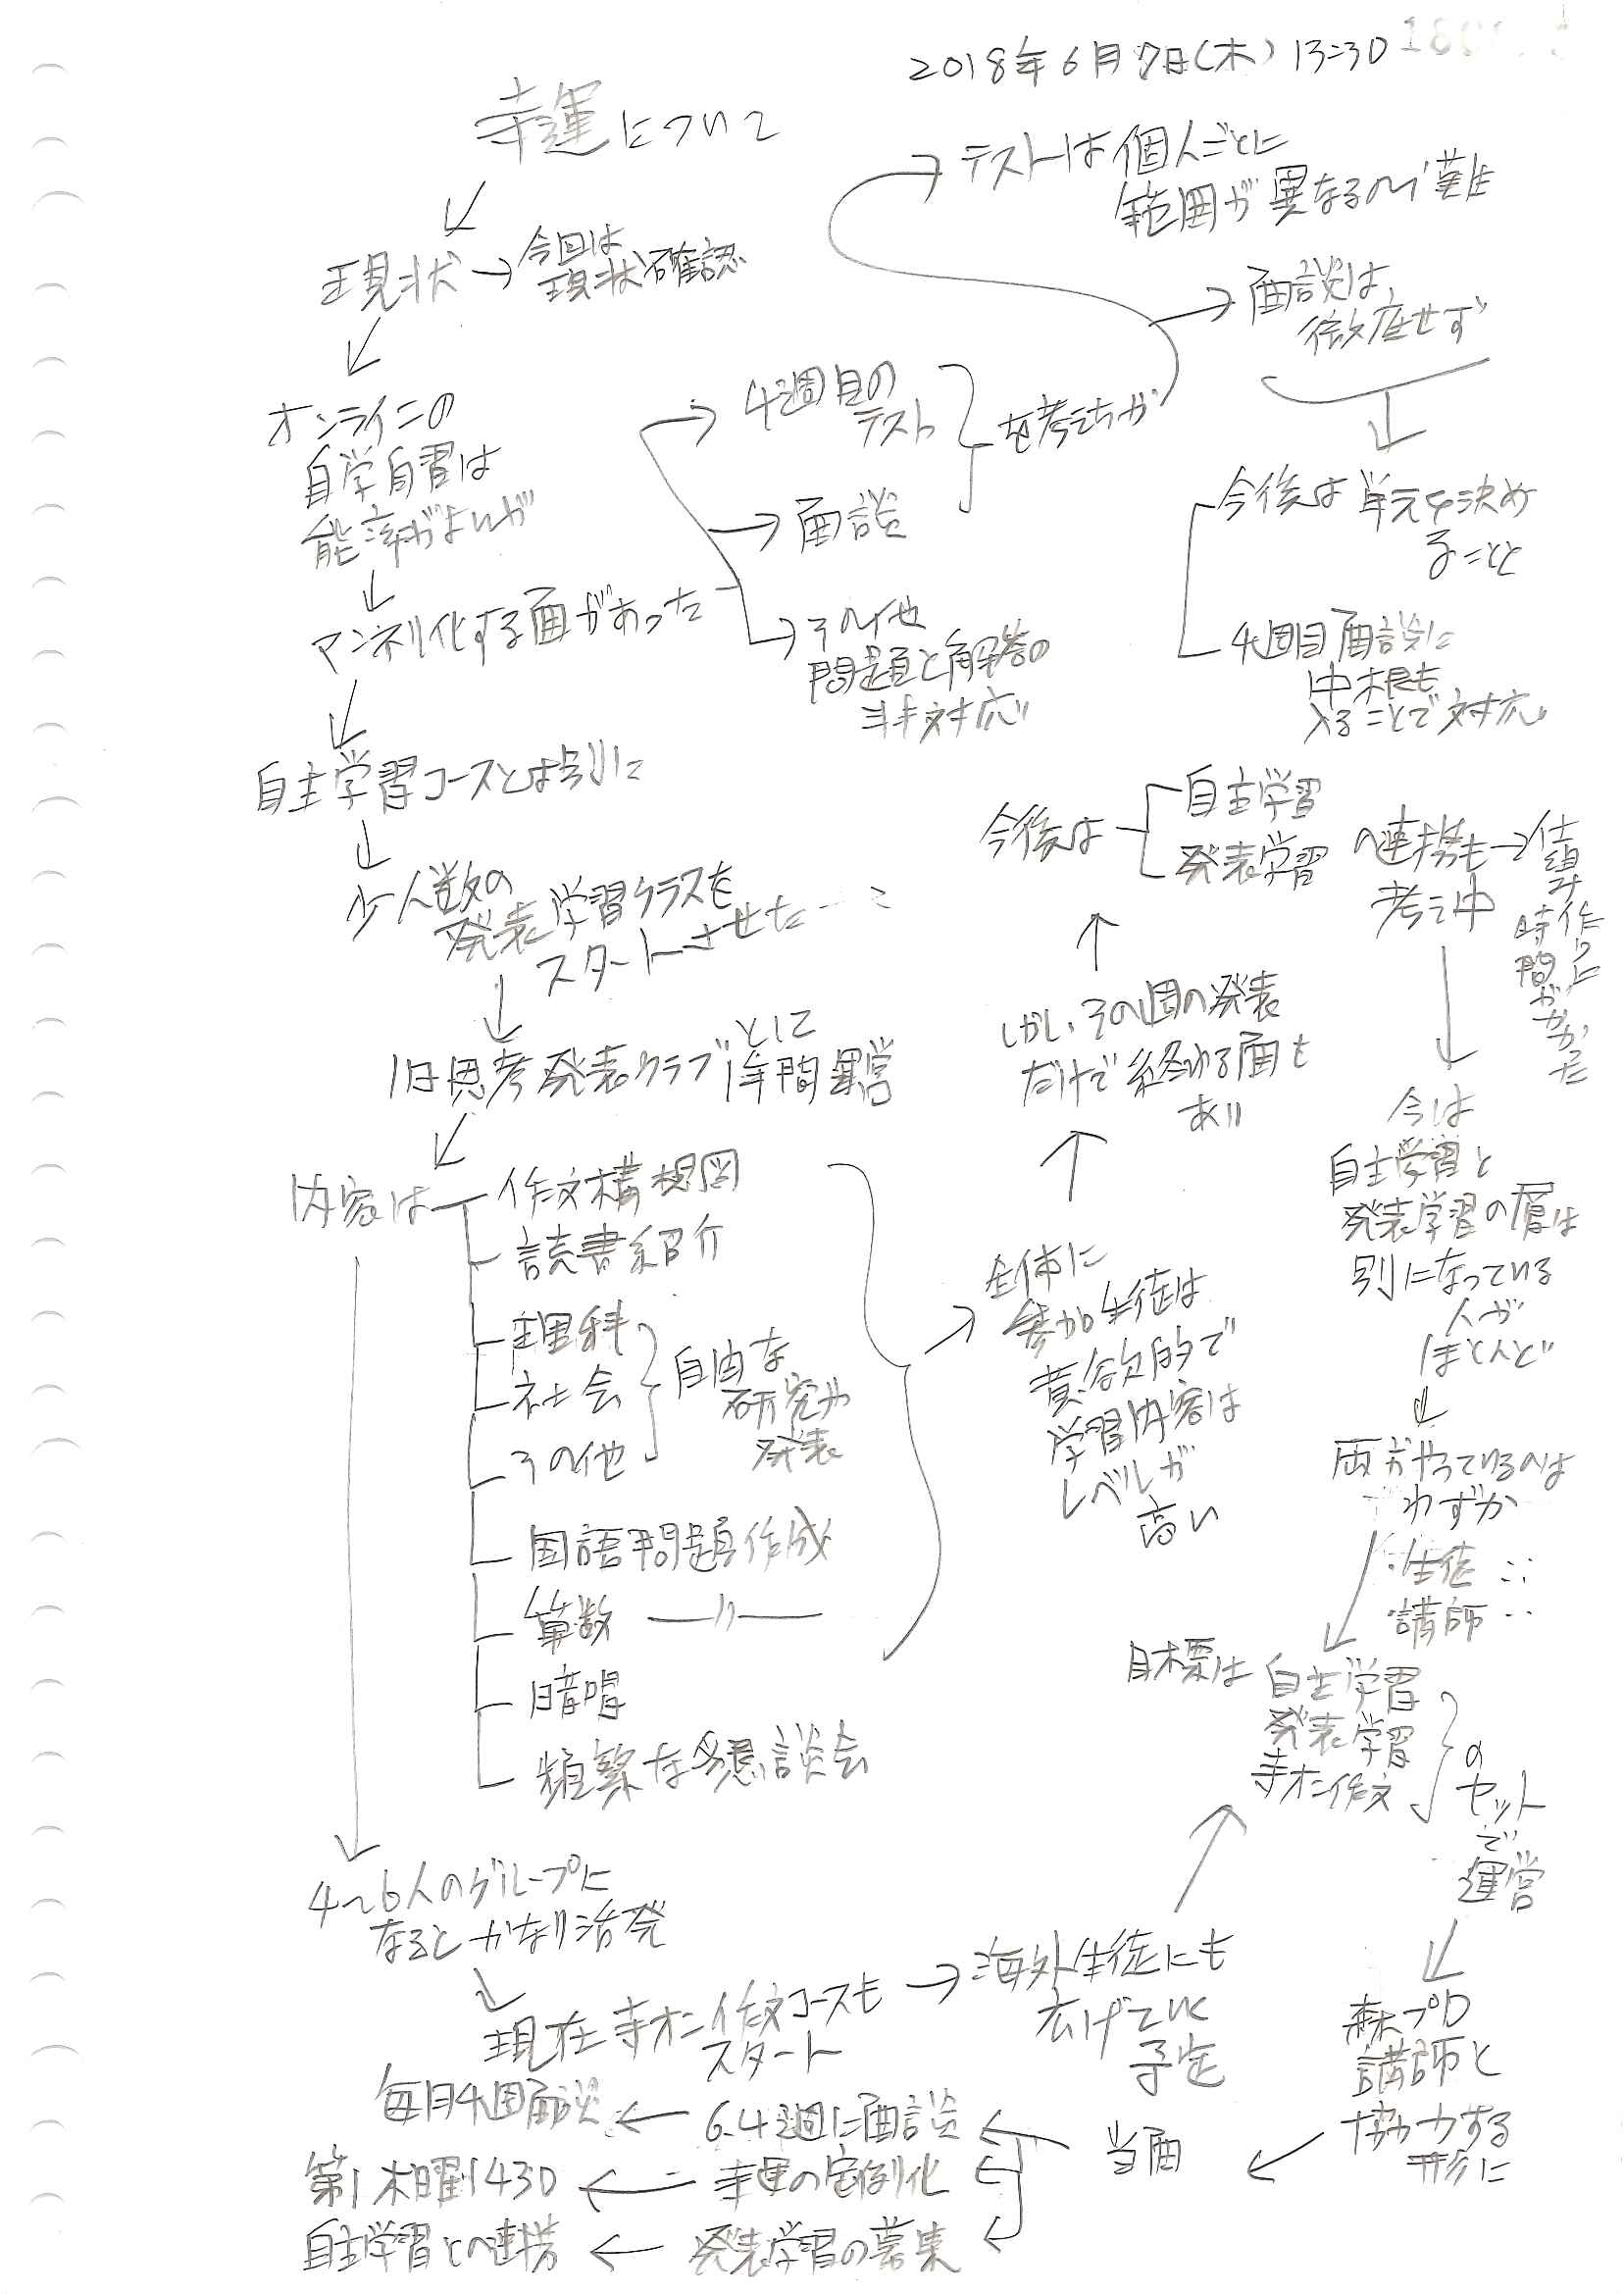 2018年6月7日(木) 13:30
寺運について
現状
今回は
現状確認
オンラインの
自学自習は
能率がよいが
マンネリ化する面があった
4週目の
テスト
面談
その他
問題と解答の
を考えたが
テストは個人ごとに
範囲が異なるので難
面談は、
徹底せず
今後は単元を決め
ること
4週目面談に
中根も
入ることで対応
自主学習コースとは別に
少人数の
発表学習クラスを
スタートさせた
旧思考発表クラブとして
1年間運営
内容は
作文構想図
読書紹介
理科
社会
その他
自由な
研究や
発表
国語問題作成
算数 〃
暗唱
頻繁な懇談会
全体に
参加生徒は
意欲的で
学習内容は
レベルが
高い
しかし、その週の発表
だけで終わる面も
あり
今後は
自主学習
発表学習
の連携も
考え中
仕組み作りに
時間がかかった
今は
自主学習と
発表学習の層は
別になっている
人が
ほとんど
両方やっているのは
わずか
生徒
講師
目標は
自主学習
発表学習
寺オン作文
の
セット
で
運営
森プロ
講師と
協力する
形に
4~6人のグループに
なるとかなり活発
現在寺オン作文コースも
スタート
海外生徒にも
広げていく
予定
当面
6.4週に面談
毎月4週面談
寺運の定例化
第1木曜1430
発表学習の募集
自主学習との連携